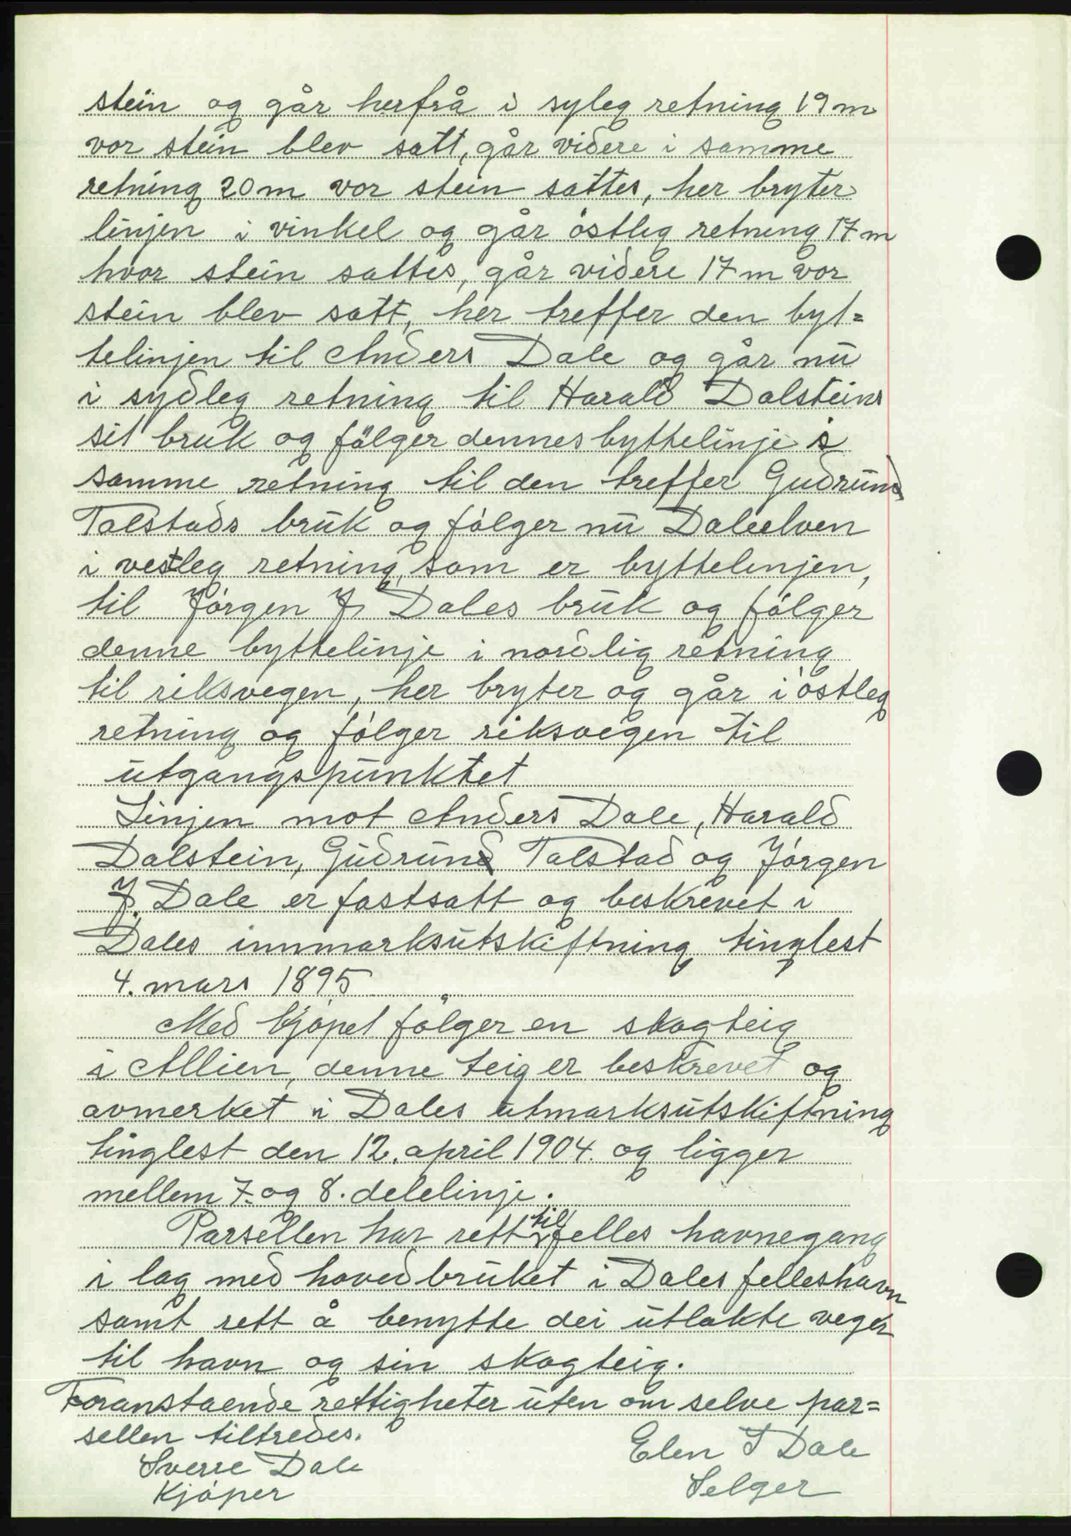 stein og går herfrå i syleg retning 19 m
vor stein blev satt, går videre i samme
retning 20 m vor stein sattes, her bryter
linjen i vinkel og går östleg retning 17 m
hvor stein sattes, går videre 17 m vor
stein blev satt, her treffer den byt=
telinjen til Anders Dale og går nu
i sydleg retning til Harald Dalsteins
sit bruk og fölger dennes byttelinje i
samme retning til den treffer Gudrund
Talstads bruk og fólger nu Daleelven
i vestleg retning, som er byttelenjen,
til Jórgen J. Dales bruk og fólger
denne byttelinje i nordlig retning
til riksvegen, her bryter og går i östleg
retning og fólger riksvegen til
utgangspunktet
Linjen mot Anders Dale, Harald
Dalstein, Gudrund Talstad og Jórgen
J. Dale er fastsatt og beskrevet i
Dales innmarksutskiftning tinglest
4. mars 1895
Med kjópet fölger en skogteig
i Allien, denne teig er beskrevet og
avmerket i Dales utmarksutskiftning
tinglest den 12. april 1904. og ligger
mellem 7. og 8. delelinje.
Parsellen har rett til felles havnegang
i lag med hovedbruket i Dales felleshavn
samt rett å benytte dei utlakte veger
til havn og sin skogteig.
Foranstaende rettigheter uten om selve par=
sellen tiltredes.
Sverre Dale
Kjóper
Elen I Dale
Selger